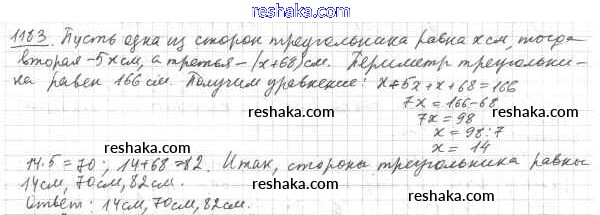 reshaka.com
1183. Пусть одна из сторон треугольника равна x см, тогда
вторая - 5x см, а третья - (x+68) см. Периметр треугольни-
ка равен 166 см. Получим уравнение: x+5x+x+68=166
7x=166-68
7x=98
reshaka.com
x=98:7
x=14
reshaka.com
14·5=70; 14+68=82. Итак, стороны треугольника равны
14см, 70см, 82см.
reshaka.com
Ответ: 14см, 70см, 82см.
reshaka.com